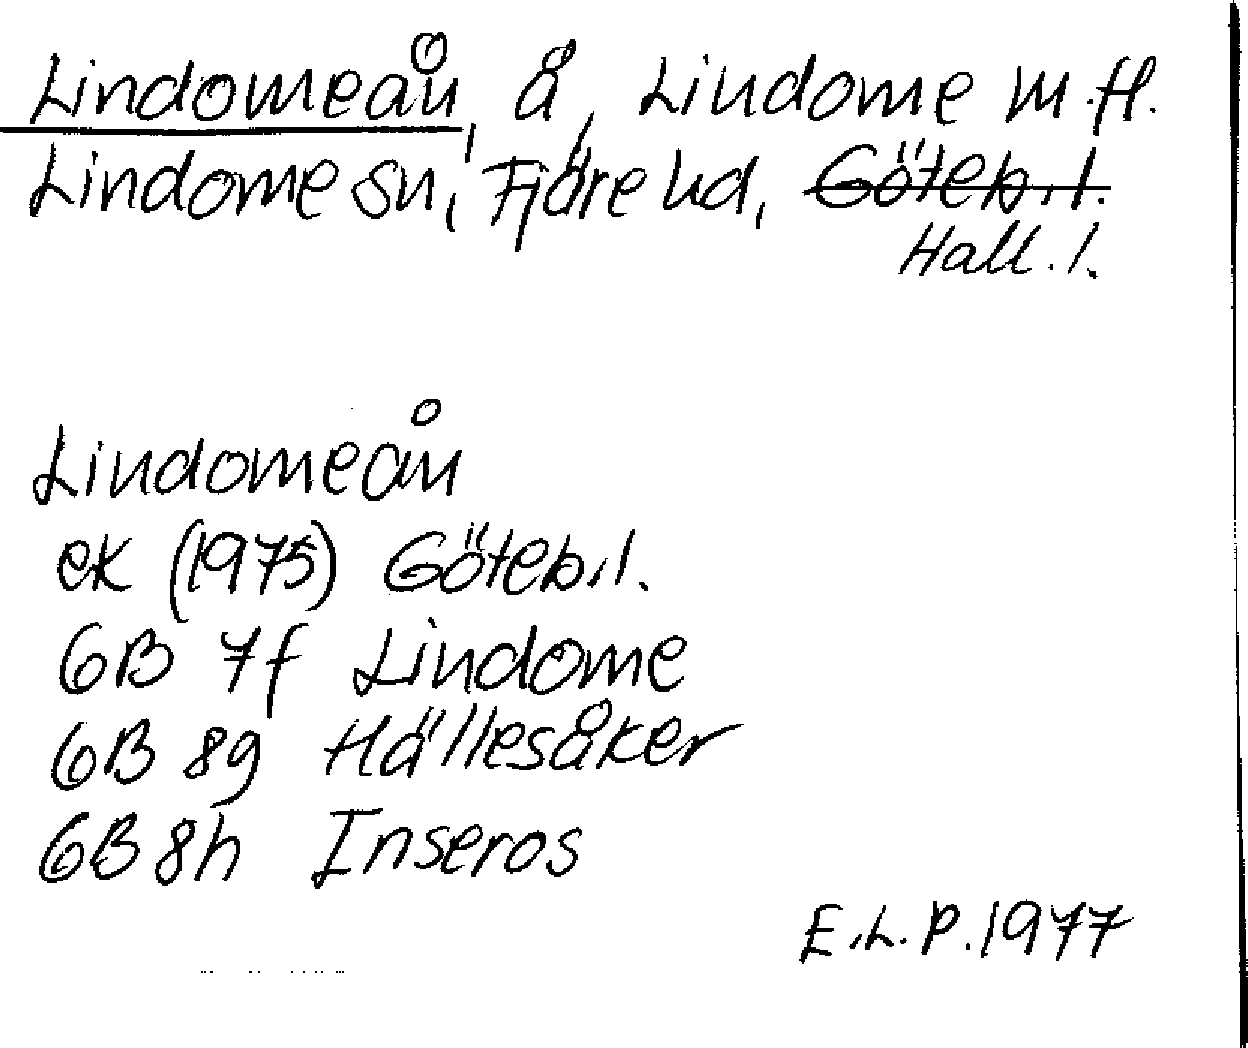 Lindomeån, å, Lindome m.fl.
Lindome sn, Fjäre hd, Göteb.l.
Hall.l.
Lindomeån
ek (1975) Göteb.l.
6B 7f Lindome
6B 8g Hällesåker
6B 8h Inseros
E.L.P. 1977